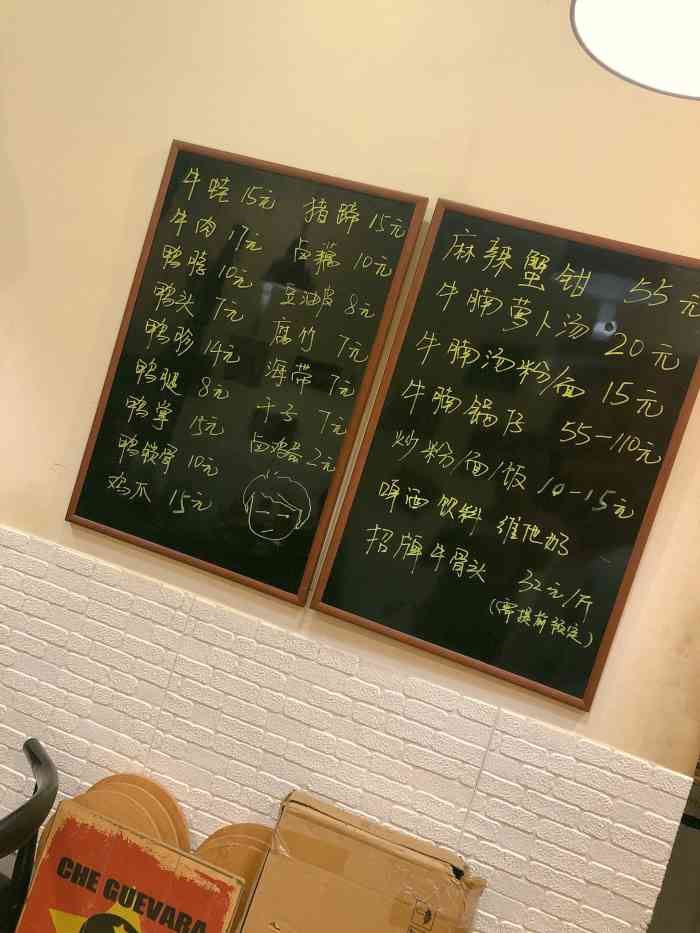 牛蛙 15元
牛肉 17元
鸭膀 10元
鸭头 7元
鸭珍 14元
鸭腿 8元
鸭掌 15元
鸭锁骨 10元
鸡爪 15元
猪蹄 15元
卤藕 10元
豆油皮 8元
腐竹 7元
海带 7元
干子 7元
卤鸡蛋 2元
麻辣蟹钳 55元
牛腩萝卜汤 20元
牛腩汤粉/面 15元
牛腩锅仔 55-110元
炒粉/面/饭 10-15元
啤酒 饮料 维他奶
招牌牛骨头 32元/斤
(需提前预定)
CHE GUEVARA